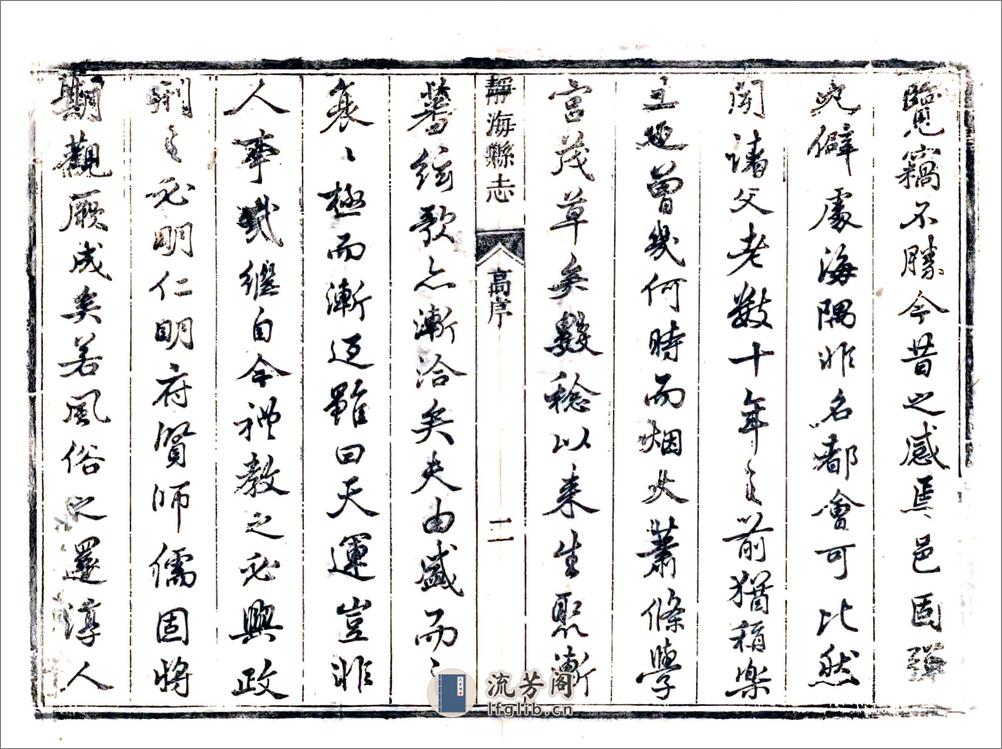 覽竊不勝今昔之感焉邑固彈
丸僻處海隅非名都會可比然
聞諸父老數十年之前猶稱樂
土迨曾幾何時而烟火蕭條學
宮茂草矣數稔以來生聚漸
蕃絃歌亦漸洽矣夫由盛而之
衰衰極而漸返雖曰天運豈非
人事哉繼自今禮教之必興政
刑之必明仁明府賢師儒固將
期觀厥成矣若風俗之還淳人
靜海縣志
高序
二
流芳阁
lfglib.cn